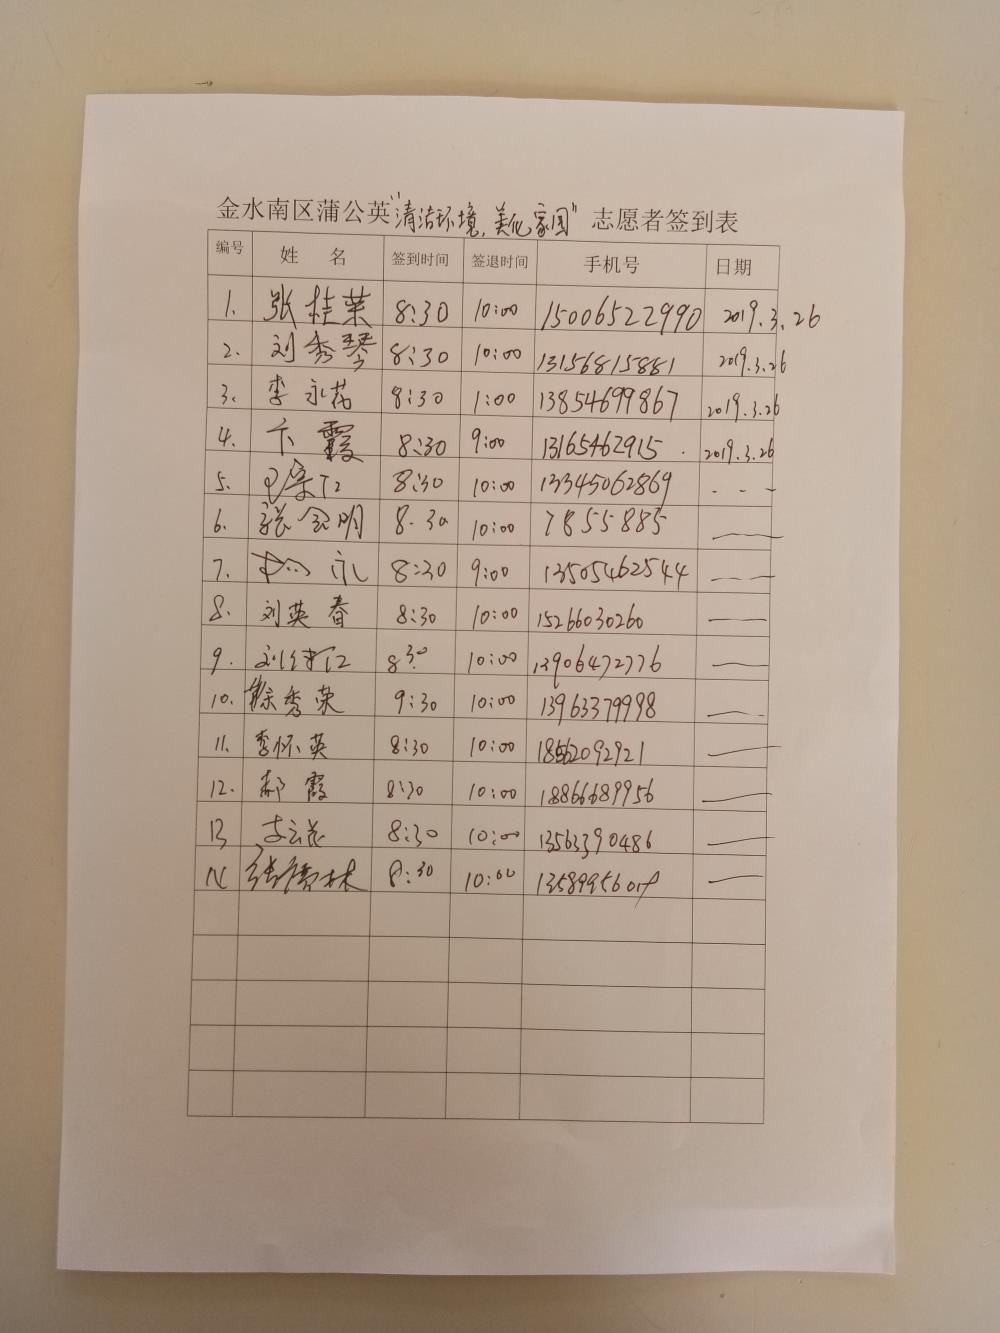 金水南区蒲公英"清洁环境,美化家园"志愿者签到表
编号 姓 名 签到时间 签退时间 手机号 日期
1. 张桂菜 8:30 10:00 15006522990 2019.3.26
2. 刘秀琴 8:30 10:00 13156815881 2019.3.26
3. 李永花 8:30 1:00 13854699867 2019.3.26
4. 卞霞 8:30 9:00 13165462915 2019.3.26
5. 8:30 10:00 13345062869 - - -
6. 张金明 8.30 10:00 7855885 —
7. 8:30 9:00 13505462544 — —
8. 刘英春 8:30 10:00 15266030260 —
9. 8:30 10:00 13906472776 —
10. 徐秀荣 9:30 10:00 13963379998 —
11. 李怀英 8:30 10:00 18562092921 —
12. 郝霞 8:30 10:00 18866689956 —
13 李云花 8:30 10:00 13563390486 —
14 8:30 10:00 —